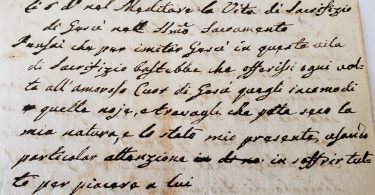 li 6 do nel Meditare la Vita di Sacrifizio
di Gesù nell SSmo Sacramento
Pensai che per imitar Gesù in questa vita
di Sacrifizio bastrebbe che offerissi ogni vol-
ta all'amoroso Cuor di Gesù quegli incomodi
e quelle noje, e travagli che porta seco la
mia natura, e lo stato mio presente, usando
particolar attenzione in soffrir tut
to per piacere a lui